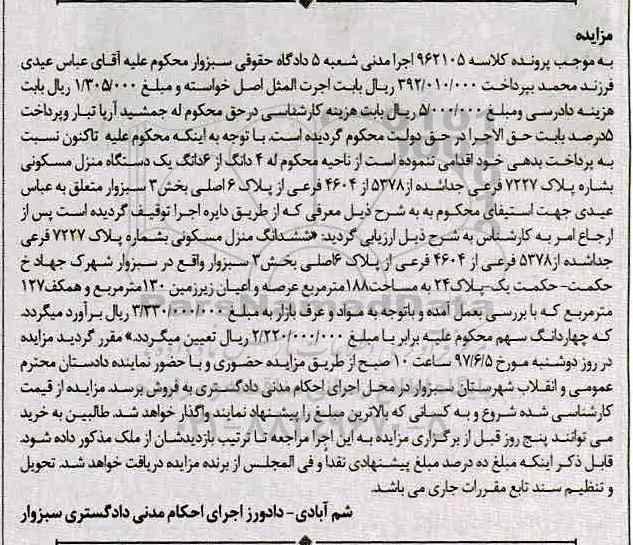 مزایده
به موجب پرونده کلاسه ۹۶۲۱۰۵ اجرا مدنی شعبه ۵ دادگاه حقوقی سبزوار محکوم علیه آقای عباس عیدی
فرزند محمد بپرداخت ۳۹۲/۰۱۰/۰۰۰ ریال بابت اجرت المثل اصل خواسته و مبلغ ۱/۳۰۵/۰۰۰ ریال بابت
هزینه دادرسی ومبلغ ۵/۰۰۰/۰۰۰ ریال بابت هزینه کارشناسی درحق محکوم له جمشید آریا تبار وپرداخت
۵درصد بابت حق الاجرا در حق دولت محکوم گردیده است. با توجه به اینکه محکوم علیه تاکنون نسبت
به پرداخت بدهی خود اقدامی ننموده است از ناحیه محکوم له ۴ دانگ از ۶دانگ یک دستگاه منزل مسکونی
بشاره پلاک ۷۲۲۷ فرعی جداشده از۵۳۷۸ از ۴۶۰۴ فرعی از پلاک ۶ اصلی بخش۳ سبزوار متعلق به عباس
عیدی جهت استیفای محکوم به به شرح ذیل معرفی که از طریق دایره اجرا توقیف گردیده است پس از
ارجاع امر به کارشناس به شرح ذیل ارزیابی گردید: «ششدانگ منزل مسکونی بشماره پلاک ۷۲۲۷ فرعی
جداشده از۵۳۷۸ فرعی از ۴۶۰۴ فرعی از پلاک ۶اصلی بخش۳ سبزوار واقع در سبزوار شهرک جهاد خ
حکمت- حکمت یک-پلاک۲۴ به مساحت۱۸۸مترمربع عرصه و اعیان زیرزمین ۱۳۰مترمربع و همکف۱۲۷
مترمربع که با بررسی بعمل آمده و باتوجه به مواد و عرف بازار به مبلغ ۳/۳۳۰/۰۰۰/۰۰۰ ریال برآورد میگردد.
که چهاردانگ سهم محکوم علیه برابر با مبلغ ۲/۲۲۰/۰۰۰/۰۰۰ ریال تعیین میگردد.» مقرر گردید مزایده
در روز دوشنبه مورخ ۹۷/۶/۵ ساعت ۱۰ صبح از طریق مزایده حضوری و با حضور نماینده دادستان محترم
عمومی و انقلاب شهرستان سبزوار در محل اجرای احکام مدنی دادگستری به فروش برسد. مزایده از قیمت
کارشناسی شده شروع و به کسانی که بالاترین مبلغ را پیشنهاد نمایند واگذار خواهد شد. طالبین به خرید
می توانند پنج روز قبل از برگزاری مزایده به این اجرا مراجعه تا ترتیب بازدیدشان از ملک مذکور داده شود.
قابل ذکر اینکه مبلغ ده درصد مبلغ پیشنهادی نقداً و فی المجلس از برنده مزایده دریافت خواهد شد. تحویل
و تنظیم سند تابع مقررات جاری می باشد.
شم آبادی- دادورز اجرای احکام مدنی دادگستری سبزوار